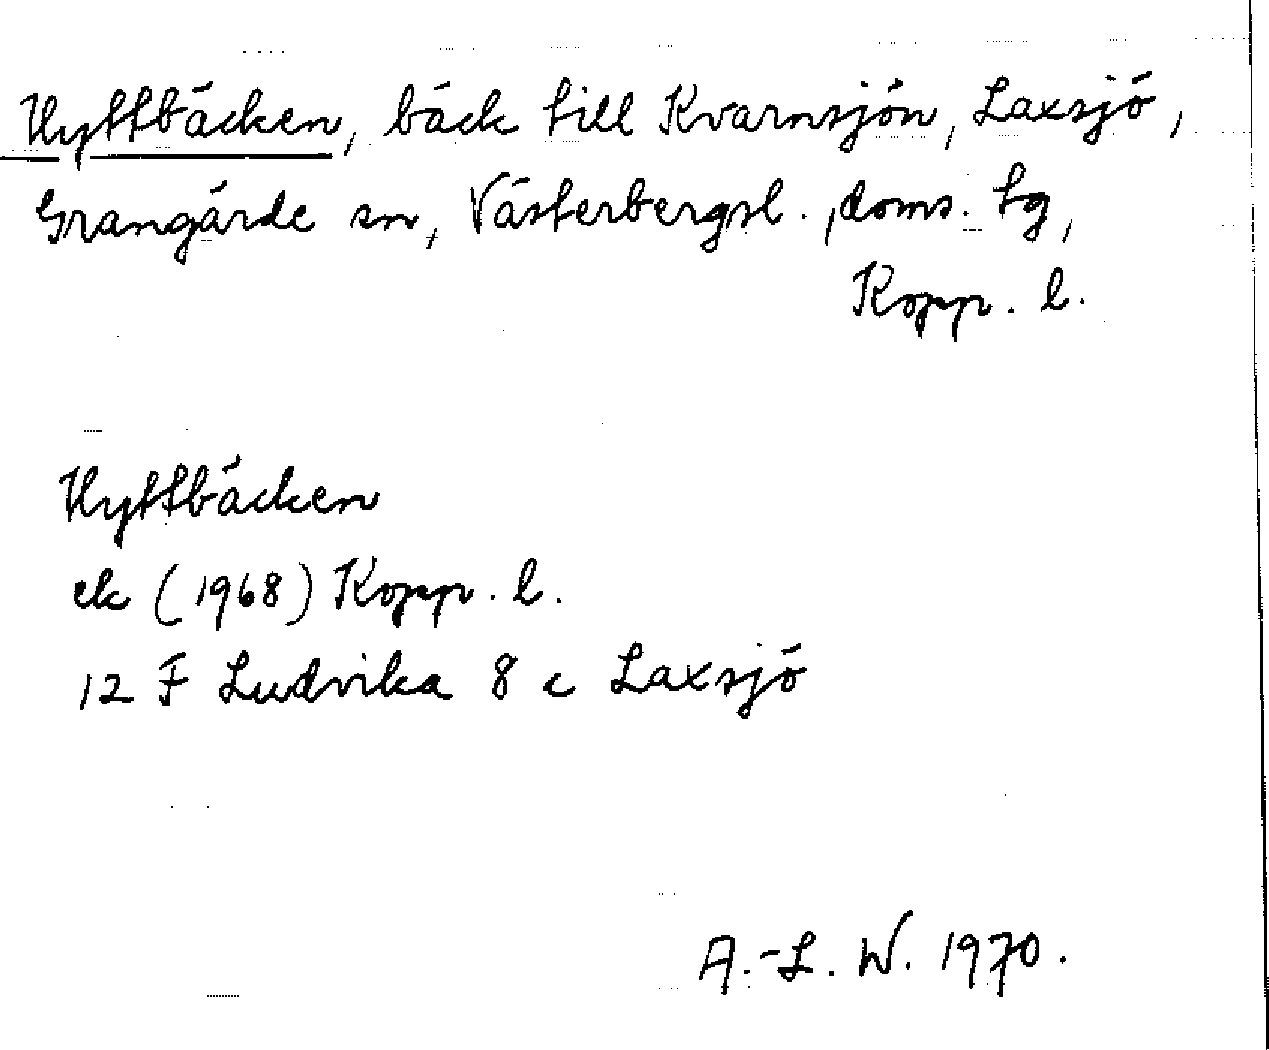 Hyttbäcken, bäck till Kvarnsjön, Laxsjö,
Grangärde sn, Västerbergsl., doms. tg,
Kopp. l.
Hyttbäcken
ek (1968) Kopp. l.
12 F Ludvika 8 c Laxsjö
A.-L. W. 1970.